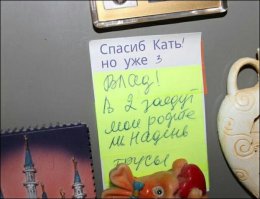 Спасиб Кать!
но уже 3
Влад!
В 2 заедут
мои родите
ли Надень
трусы